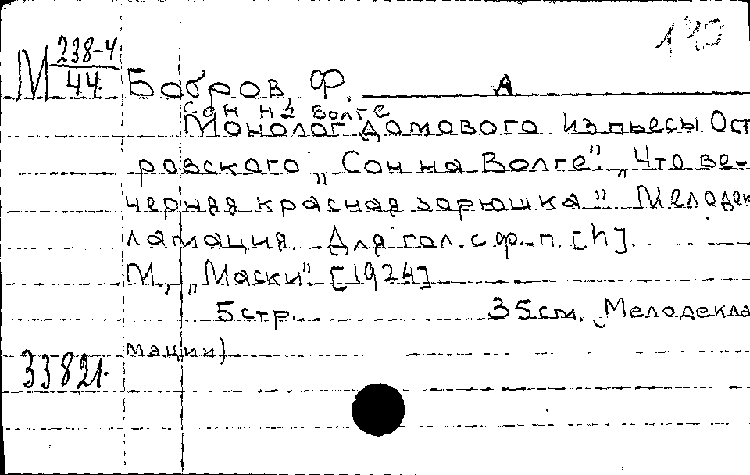 140
М 238-4
44
Бобров Ф. А
Сон на Волге
Монолог Домового из пьесы Ост
ровского „Сон на Волге". „Что ве-
черняя красная зарюшка" Мелодек
ламация. Для гол. с ф.-п. [h].
М., „Маски". [1924]
5 стр. 35 см. (Мелодекла
мации)
33821.